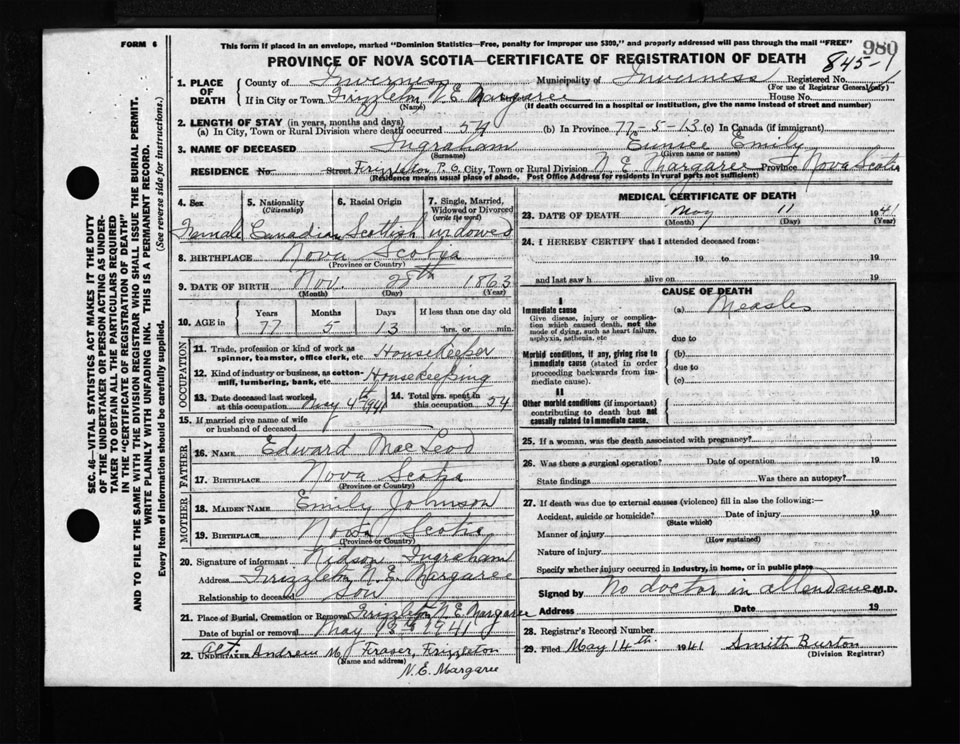 FORM 6
This form if placed in an envelope, marked "Dominion Statistics—Free, penalty for improper use $300," and properly addressed will pass through the mail "FREE"
980
PROVINCE OF NOVA SCOTIA—CERTIFICATE OF REGISTRATION OF DEATH
845-1
1. PLACE OF DEATH
County of Inverness Municipality of Inverness Registered No.
(For use of Registrar General only)
If in City or Town Frizzleton N.E. Margaree House No.
(Name) (If death occurred in a hospital or institution, give the name instead of street and number)
2. LENGTH OF STAY (in years, months and days)
(a) In City, Town or Rural Division where death occurred 54 (b) In Province 77-5-13 (c) In Canada (if immigrant)
3. NAME OF DECEASED Ingraham Eunice Emily
(Surname) (Given name or names)
RESIDENCE No. Street Frizzleton P.O. City, Town or Rural Division N.E. Margaree Province Nova Scotia
(Residence means usual place of abode. Post Office Address for residents in rural parts not sufficient)
4. Sex 5. Nationality (Citizenship) 6. Racial Origin 7. Single, Married, Widowed or Divorced (write the word)
Female Canadian Scottish widowed
8. BIRTHPLACE Nova Scotia
(Province or Country)
9. DATE OF BIRTH Nov. 28th 1863
(Month) (Day) (Year)
10. AGE in Years Months Days If less than one day old
77 5 13 hrs. or min.
OCCUPATION
11. Trade, profession or kind of work as spinner, teamster, office clerk, etc. Housekeeper
12. Kind of industry or business, as cotton-mill, lumbering, bank, etc. Housekeeping
13. Date deceased last worked at this occupation May 4th 1941 14. Total yrs. spent in this occupation 54
15. If married give name of wife or husband of deceased
FATHER
16. NAME Edward MacLeod
17. BIRTHPLACE Nova Scotia
(Province or Country)
MOTHER
18. MAIDEN NAME Emily Johnson
19. BIRTHPLACE Nova Scotia
(Province or Country)
20. Signature of informant Ingraham
Address Frizzleton N.E. Margaree
Relationship to deceased Son
21. Place of Burial, Cremation or Removal Frizzleton N.E. Margaree
Date of burial or removal May 13th 1941
22. UNDERTAKER Act. Andrew M. Fraser, Frizzleton
(Name and address)
N.E. Margaree
MEDICAL CERTIFICATE OF DEATH
23. DATE OF DEATH May 11 1941
(Month) (Day) (Year)
24. I HEREBY CERTIFY that I attended deceased from:
19 to 19
and last saw h alive on 19
CAUSE OF DEATH
I
Immediate cause
Give disease, injury or complication which caused death, not the mode of dying, such as heart failure, asphyxia, asthenia, etc
(a) Measles
due to
Morbid conditions, if any, giving rise to immediate cause (stated in order proceeding backwards from immediate cause).
(b)
due to
(c)
II
Other morbid conditions (if important) contributing to death but not causally related to immediate cause.
25. If a woman, was the death associated with pregnancy?
26. Was there a surgical operation? Date of operation 19
State findings Was there an autopsy?
27. If death was due to external causes (violence) fill in also the following:—
Accident, suicide or homicide? Date of injury 19
(State which)
Manner of injury
(How sustained)
Nature of injury
Specify whether injury occurred in industry, in home, or in public place
Signed by No doctor in attendance M.D.
Address Date 19
28. Registrar's Record Number
29. Filed May 14th 1941 Smith Burton
(Division Registrar)
SEC. 46—VITAL STATISTICS ACT MAKES IT THE DUTY
OF THE UNDERTAKER OR PERSON ACTING AS UNDERTAKER TO OBTAIN ALL THE PARTICULARS REQUIRED
IN THE "CERTIFICATE OF REGISTRATION OF DEATH"
AND TO FILE THE SAME WITH THE DIVISION REGISTRAR WHO SHALL ISSUE THE BURIAL PERMIT.
WRITE PLAINLY WITH UNFADING INK. THIS IS A PERMANENT RECORD.
Every item of information should be carefully supplied. (See reverse side for instructions.)